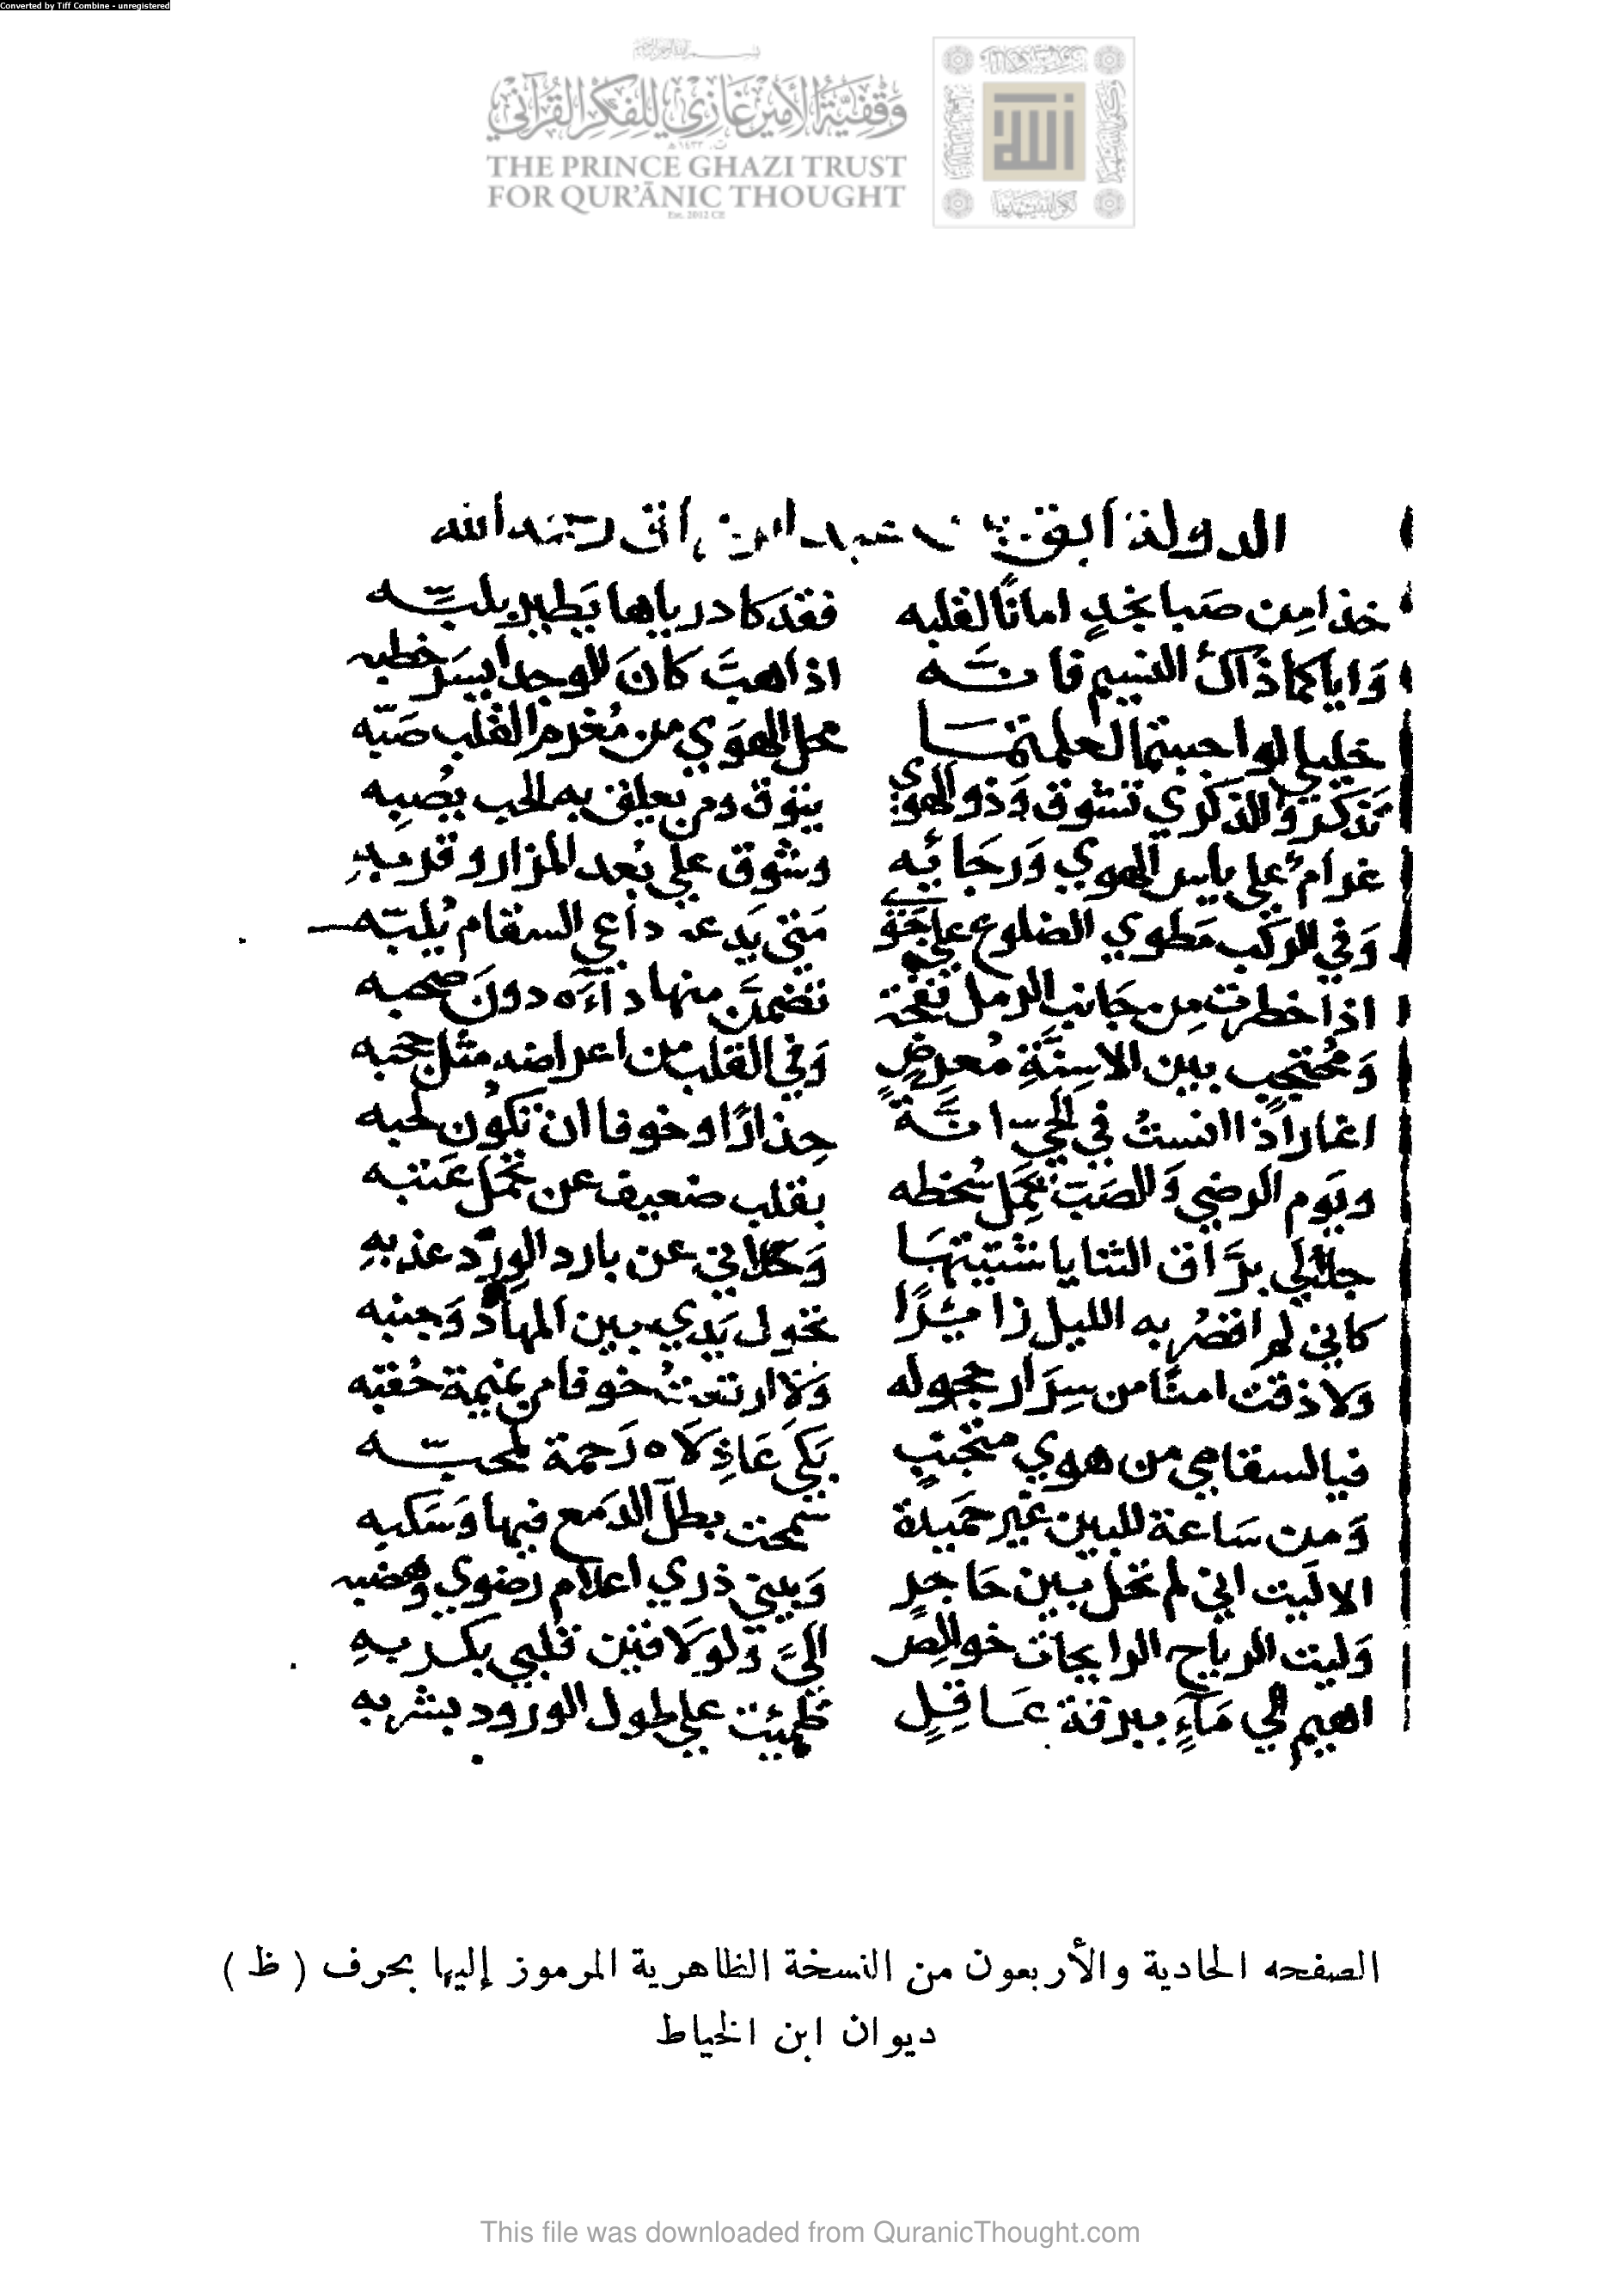 Converted by Tiff Combine - unregistered
وَقْفِيَّةُ الأَمِيرِ غَازِي لِلْفِكْرِ القُرْآنِي
THE PRINCE GHAZI TRUST
FOR QUR'ĀNIC THOUGHT
Est. 2012 CE
الدولة ابق رحمه الله
خذا مِن صَبا نجدٍ امانًا لقلبه فقد كاد رياها يَطير بلبّـه
وَاياكما ذَاكَ النسيم فانـَّه اذا هبَّ كانَ الوجد ايسَر خطبه
خليلي لو احببتما لعلمتمـا محل الهوَي من مُغرم القلب صَبّه
تذكر وَالذكري تشوق وَذو الهوي يتوق ومن يعلق به الحب يُصبِه
غرامٌ علي ياس الهوي وَرجَائِه وشوق علي بُعد المزار وقربه
وَفي الركب مَطوي الضلوع علي جَوًي مَتي يَدعه داعي السقام يُلبّه
اذا خطرت مِن جَانب الرمل نفحة تضمَّن منها داءَه دونَ صحبه
وَمُحتجب بين الاسِنَّةِ مُعرِضٍ وَفي القلب من اعراضه مثل حجبه
اغار اذا انستُ في الحيّ انـَّة حِذارًا وخوفا ان تكون لحبه
ويَوم الرضي وَالصَبّ يحمِل سُخطه بقلب ضعيف عن تحمل عَتبه
جلالي برَّاق الثنايا شتيتهَا وَحَلاني عن بارد الوِرد عذبهِ
كاني لم اقصُر به الليل زائرًا تحول يَدي بين المهاد وَجنبه
وَلا ذقت امنًا من سِرَار حجوله وَلا ارتعتُ خوفا من نميمة حُقبه
فيا لسقامي من هوي متجنبٍ بَكَي عَاذِلاه رَحمة لمحبّـه
وَمن سَاعة للبين غير حَميدة سَمحت بطلّ الدَمع فيها وَسَكبِه
الا لَيت اني لم تحل بين حَاجرٍ وَبيني ذري اعلام رضوي وهضبه
وَليت الرياح الرايحات خوالِص اليَّ وَلو لاقين قلبي بكربهِ
اهيم الي مَآءٍ ببرقة عَاقِلٍ ظمئت علي طول الورود بشربه
الصفحه الحادية والأربعون من النسخة الظاهرية المرموز إليها بحرف ( ظ )
ديوان ابن الخياط
This file was downloaded from QuranicThought.com